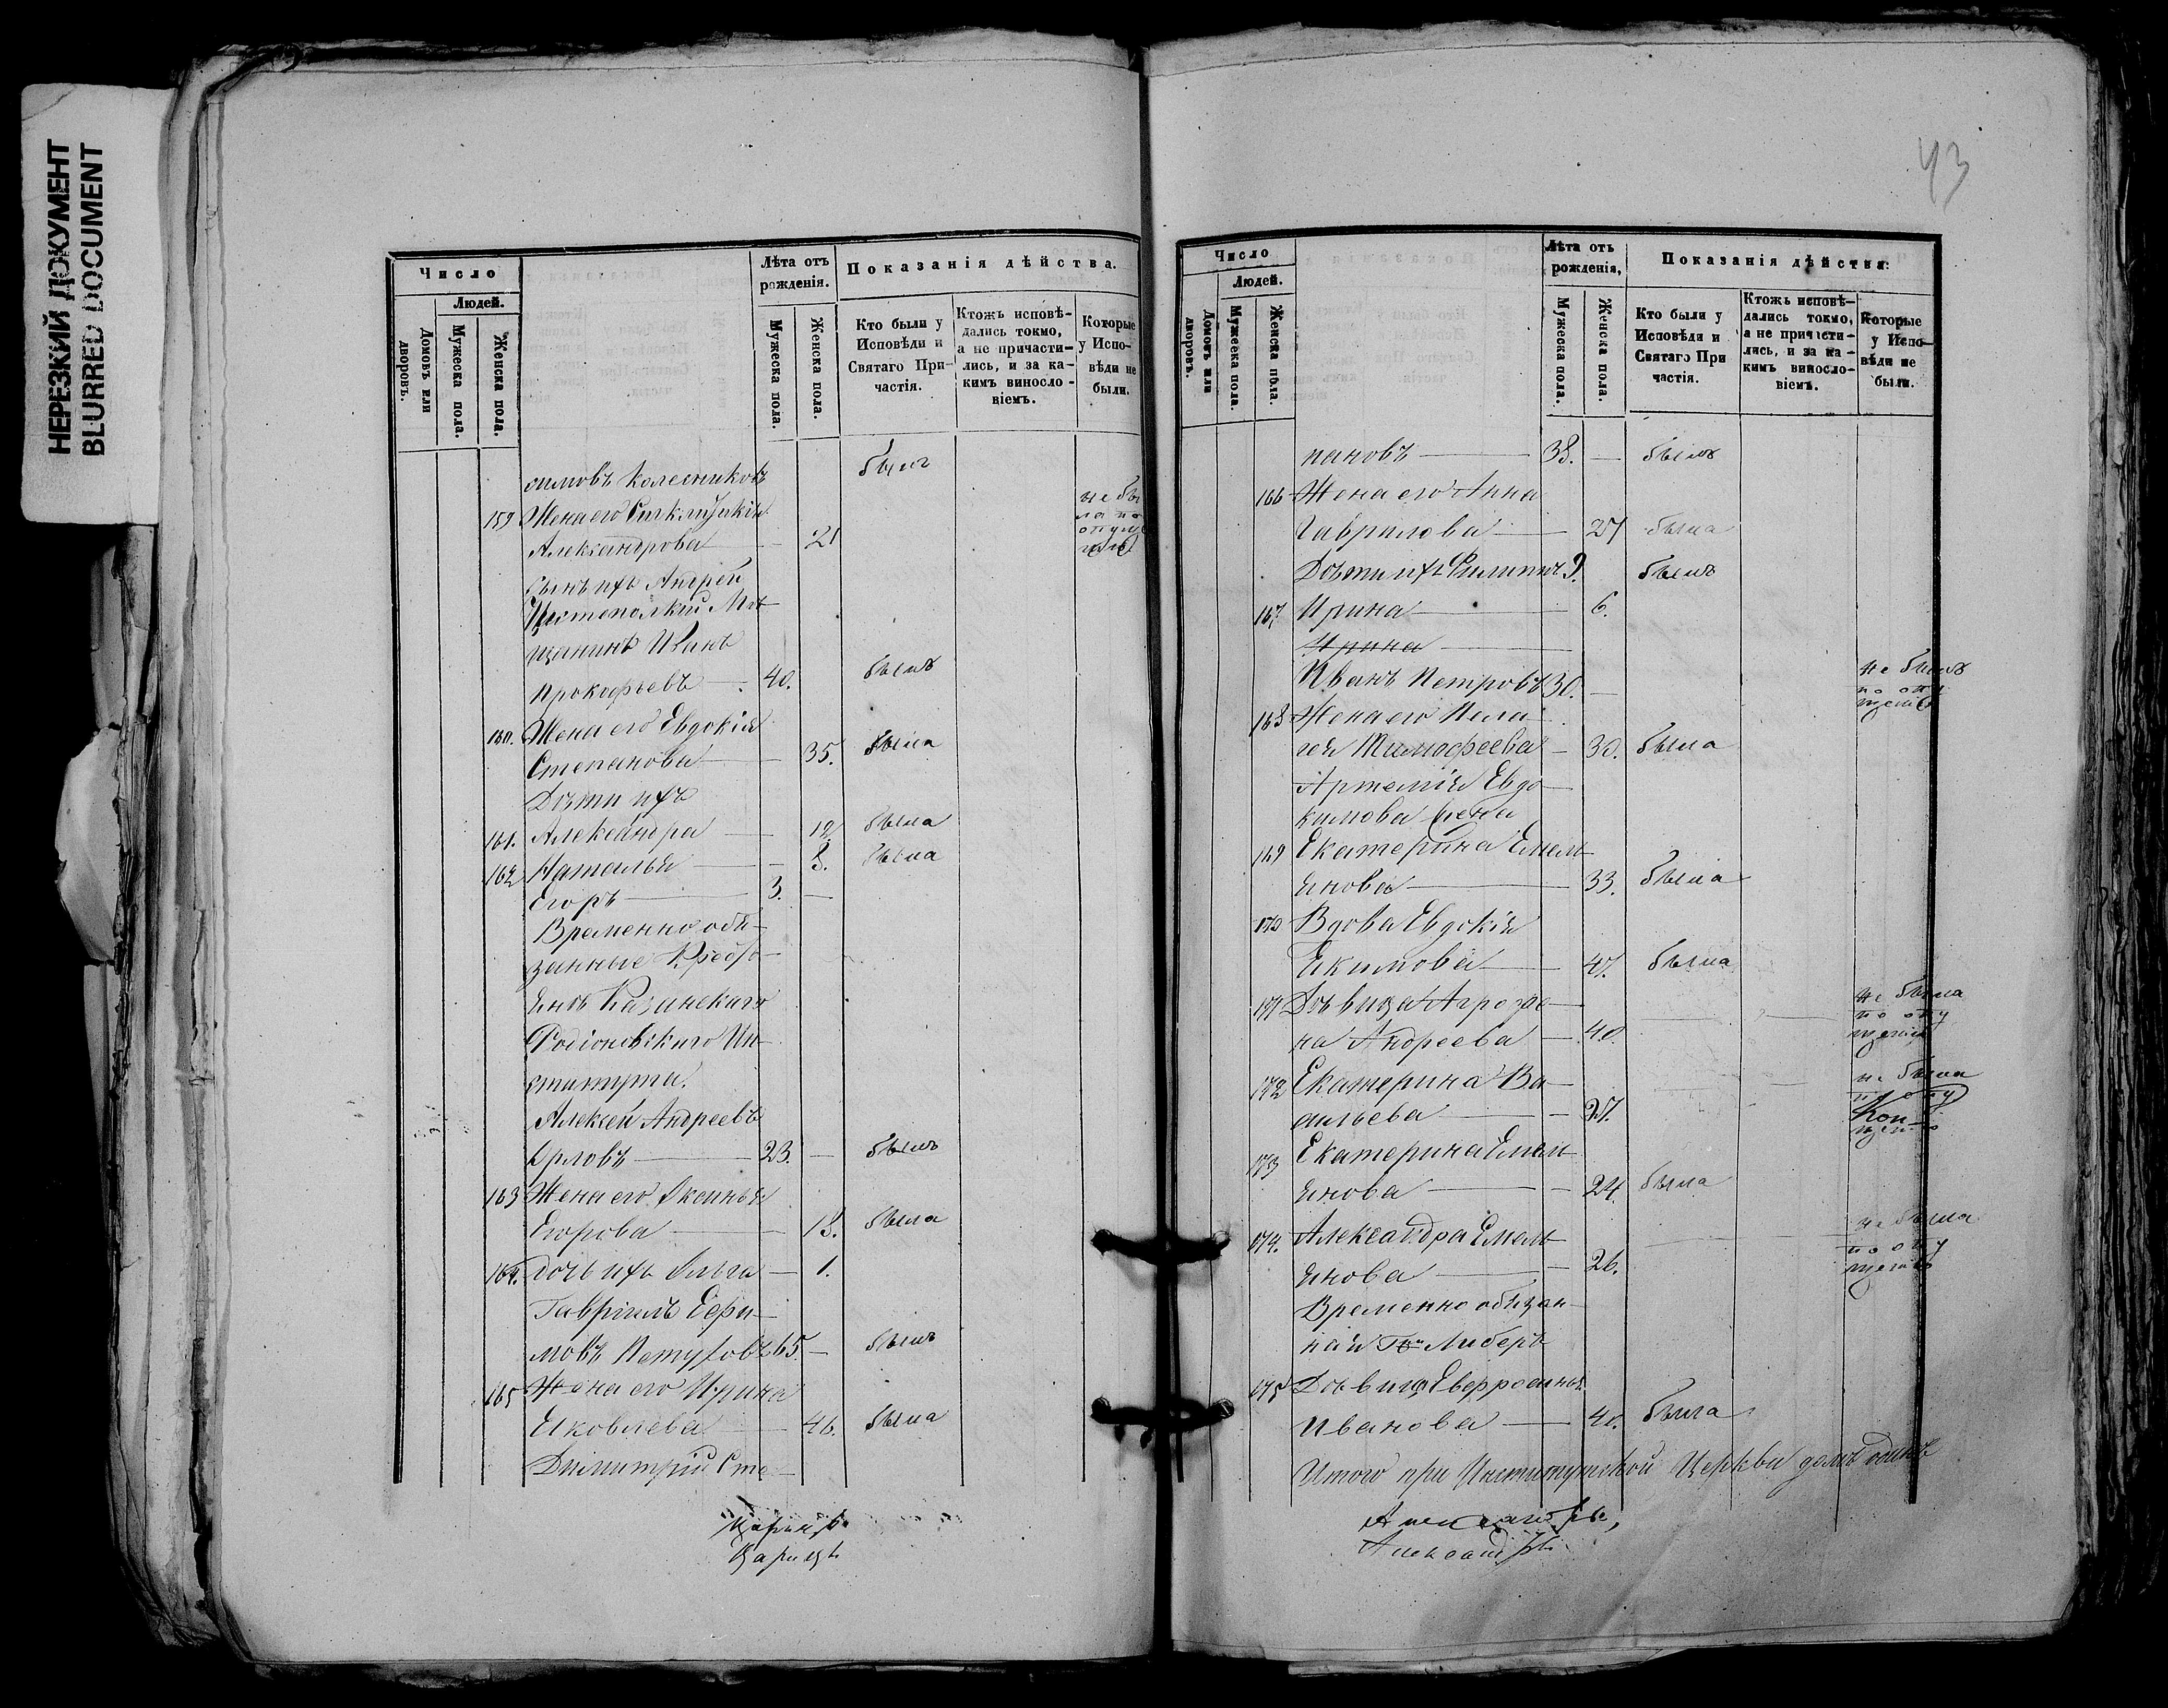 НЕРЕЗКИЙ ДОКУМЕНТ
BLURRED DOCUMENT
Число
Людей.
Домовъ или дворовъ.
Мужеска пола.
Женска пола.
Лѣта отъ рожденія.
Мужеска пола.
Женска пола.
Показанія дѣйства.
Кто были у Исповѣди и Святаго Причастія.
Ктожъ исповѣдались токмо, а не причастились, и за какимъ винословіемъ.
Которые у Исповѣди не были.
симовъ Колесниковъ былъ
159 Жена его
Александрова — 21 не была по
Сынъ ихъ Андрей
Чистопольскій Мѣ-
щанинъ Иванъ
Прокофьевъ — 40. былъ
160. Жена его Евдокія
Степанова — 35. была
Дѣти ихъ
161. Александра — 12 была
162 Наталья — 8. была
Егоръ — 3. —
Временно обя-
занные Крестья-
янѣ Казанскаго
Родіоновскаго Ин-
ститута.
Алексей Андреевъ
Орловъ — 23. — былъ
163 Жена его Аксинья
Егорова — 18. была
164. дочь ихъ Ольга — 1.
Гавріилъ Ефи-
мовъ Петуховъ 65. — былъ
165 Жена его Ирина
Яковлева — 46. была
Димитрій Сте-
Царицъ
43
Число
Людей.
Домовъ или дворовъ.
Мужеска пола.
Женска пола.
Лѣта отъ рожденія,
Мужеска пола.
Женска пола.
Показанія дѣйства:
Кто были у Исповѣди и Святаго Причастія.
Ктожъ исповѣдались токмо, а не причастились, и за какимъ винословіемъ.
Которые у Исповѣди не были.
пановъ — 38. — былъ
166 Жена его Анна
Гаврилова — 27 была
Дѣти ихъ Филиппъ 9. былъ
167. Ирина — 6.
Ирина —
Иванъ Петровъ 30. — не былъ по опу щенію
168 Жена его Пела-
гея Тимофеева — 30. была
Артемія Евдо-
кимова жена
169 Екатерина Емель-
янова — 33. была
170 Вдова Евдокія
Екимова — 47. была
171 Дѣвица Агрофе-
на Андреева — 40. не была по опу щенію
172 Екатерина Ва-
сильева — 27. не была по опу щенію
173 Екатерина Емель-
янова — 24. была
174. Александра Емель-
янова — 26. не была по опу щенію
Временно обязан-
ная Гж Либеръ
175 Дѣвица Евфросинья
Иванова — 40. была
Итого при Институтской Церкви домъ одинъ
Александръ,
Александръ